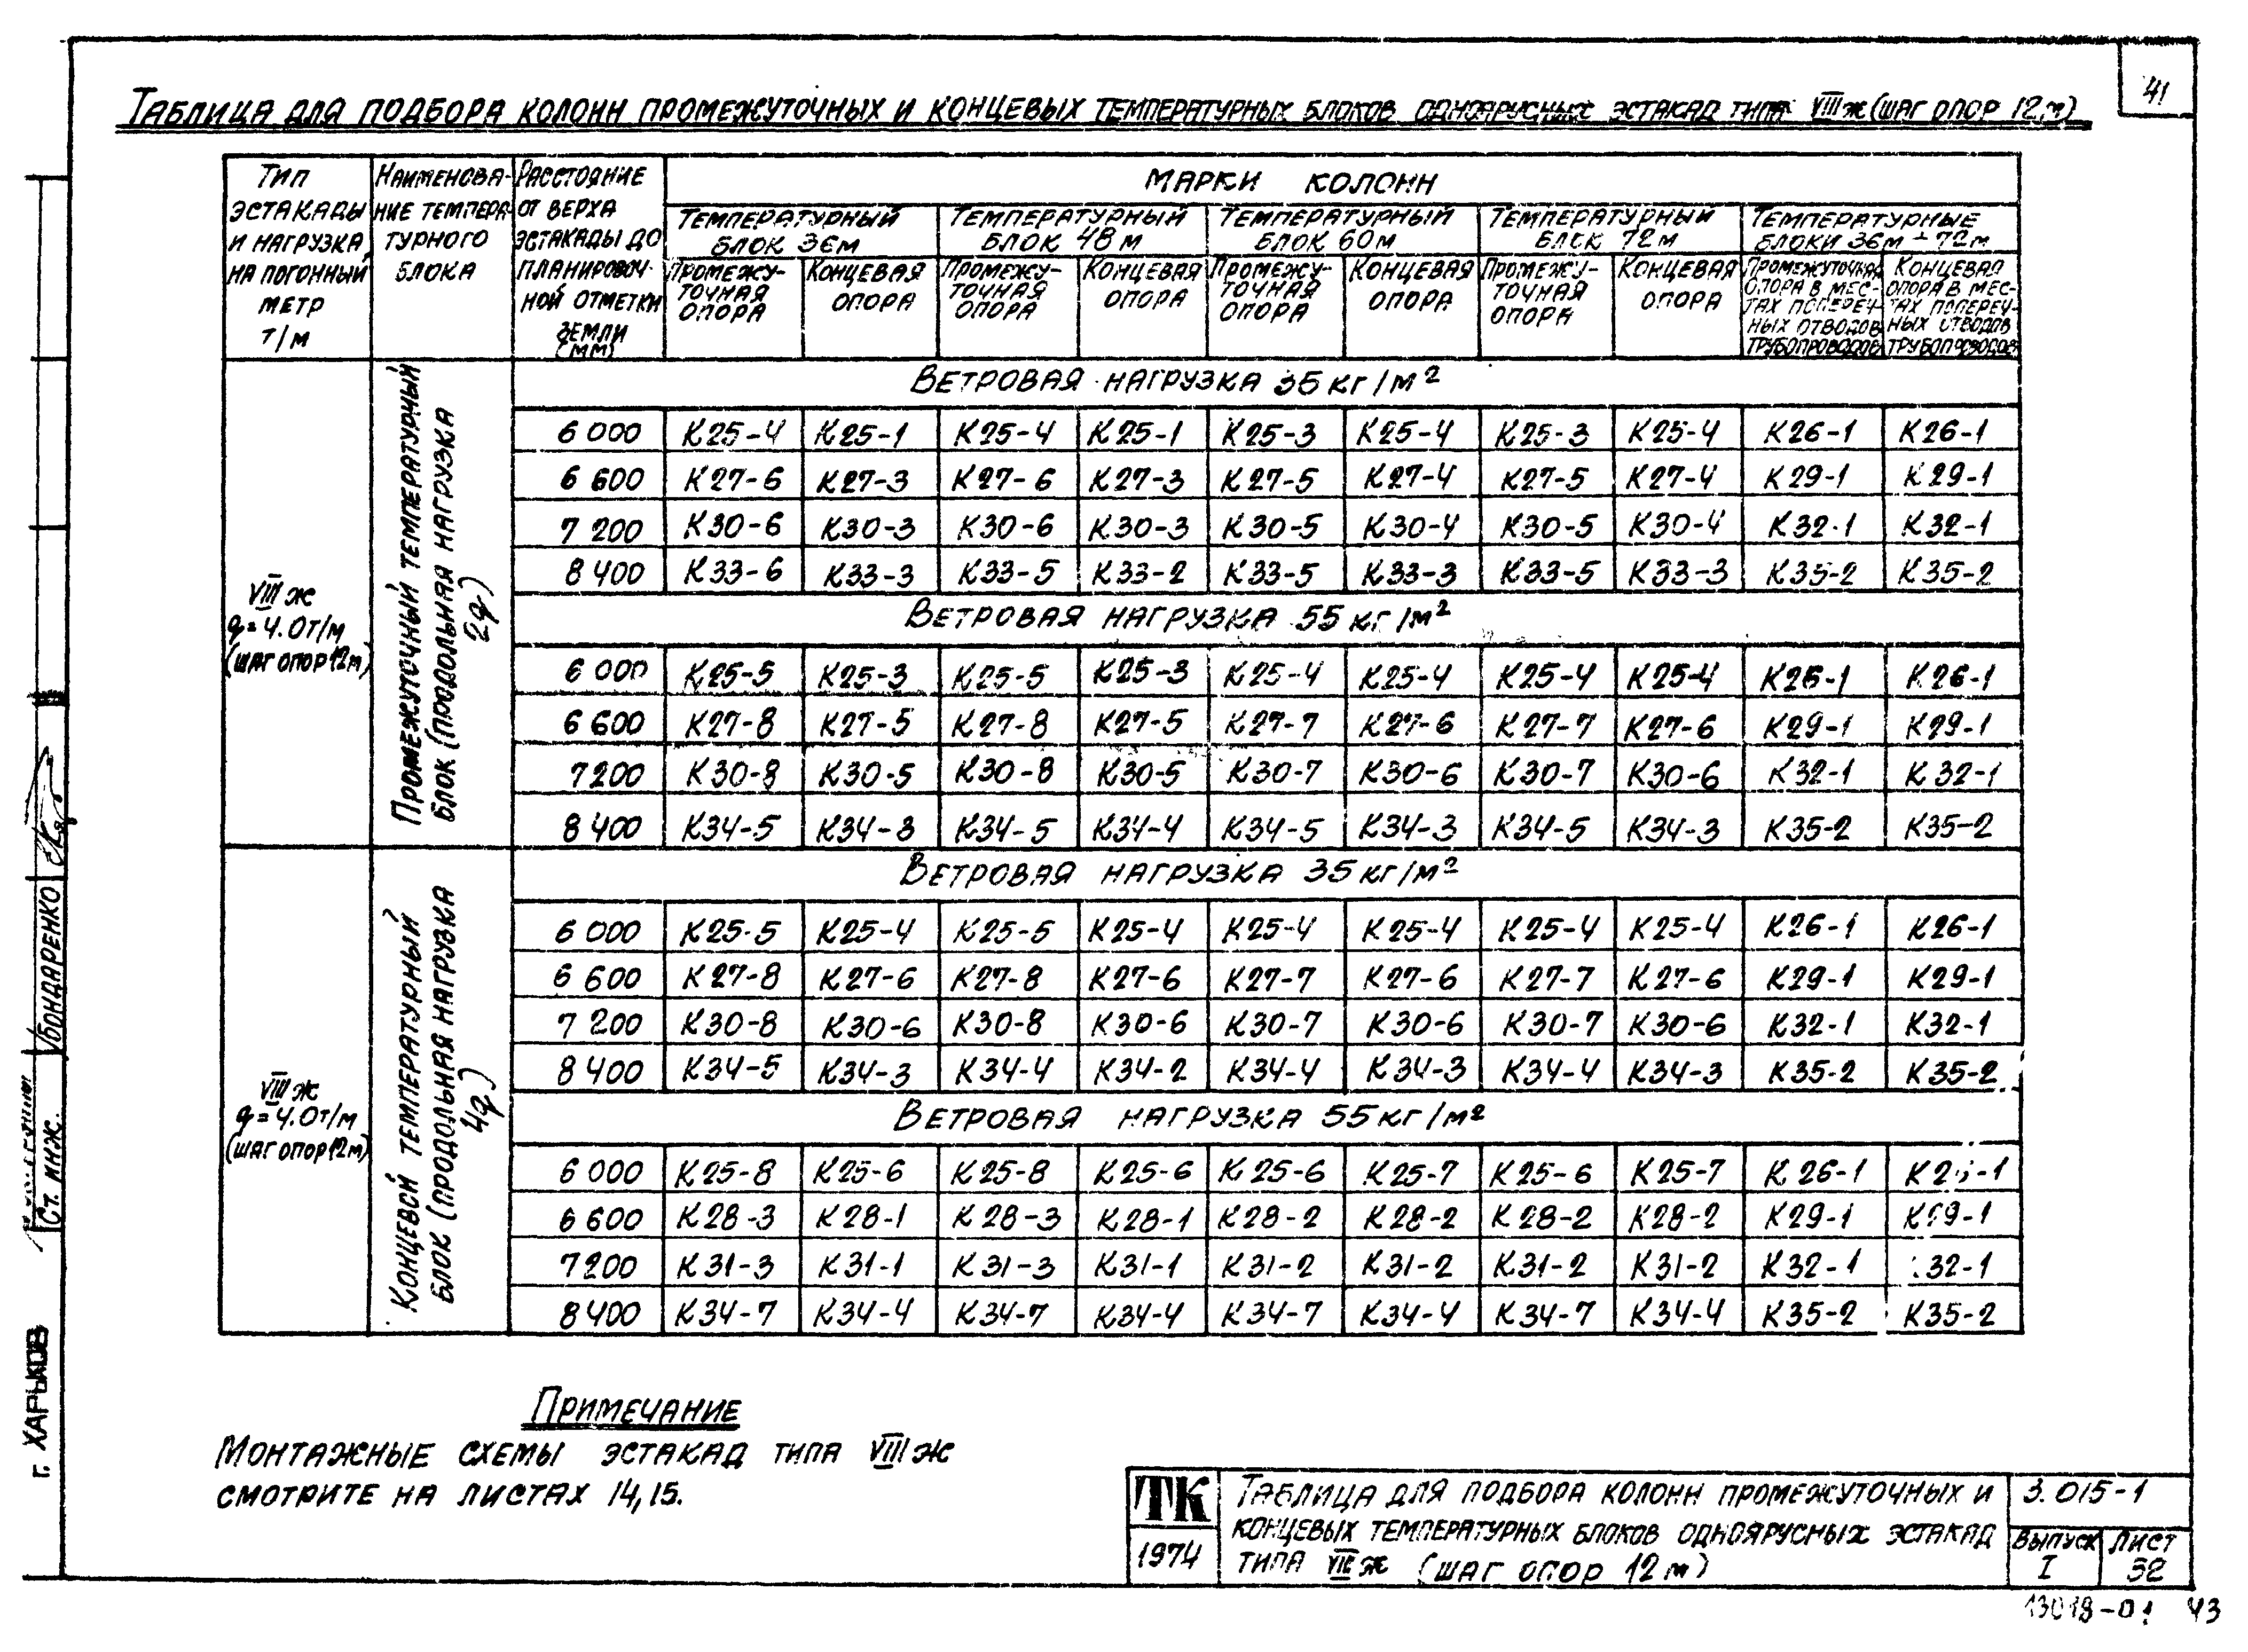 41
ТАБЛИЦА ДЛЯ ПОДБОРА КОЛОНН ПРОМЕЖУТОЧНЫХ И КОНЦЕВЫХ ТЕМПЕРАТУРНЫХ БЛОКОВ ОДНОЯРУСНЫХ ЭСТАКАД ТИПА VIIIЖ (ШАГ ОПОР 12м)
ТИП ЭСТАКАДЫ И НАГРУЗКА НА ПОГОННЫЙ МЕТР Т/М
НАИМЕНОВА-НИЕ ТЕМПЕРА-ТУРНОГО БЛОКА
РАССТОЯНИЕ ОТ ВЕРХА ЭСТАКАДЫ ДО ПЛАНИРОВОЧ-НОЙ ОТМЕТКИ ЗЕМЛИ (ММ)
МАРКИ КОЛОНН
ТЕМПЕРАТУРНЫЙ БЛОК 36м
ТЕМПЕРАТУРНЫЙ БЛОК 48м
ТЕМПЕРАТУРНЫЙ БЛОК 60м
ТЕМПЕРАТУРНЫЙ БЛОК 72м
ТЕМПЕРАТУРНЫЕ БЛОКИ 36м ÷ 72м
ПРОМЕЖУ-ТОЧНАЯ ОПОРА
КОНЦЕВАЯ ОПОРА
ПРОМЕЖУ-ТОЧНАЯ ОПОРА
КОНЦЕВАЯ ОПОРА
ПРОМЕЖУ-ТОЧНАЯ ОПОРА
КОНЦЕВАЯ ОПОРА
ПРОМЕЖУ-ТОЧНАЯ ОПОРА
КОНЦЕВАЯ ОПОРА
ПРОМЕЖУТОЧНАЯ ОПОРА В МЕС-ТАХ ПОПЕРЕЧ-НЫХ ОТВОДОВ ТРУБОПРОВОДОВ
КОНЦЕВАЯ ОПОРА В МЕС-ТАХ ПОПЕРЕЧ-НЫХ ОТВОДОВ ТРУБОПРОВОДОВ
VIIIЖ
q=4.0Т/М
(ШАГ ОПОР 12М)
ПРОМЕЖУТОЧНЫЙ ТЕМПЕРАТУРНЫЙ БЛОК (ПРОДОЛЬНАЯ НАГРУЗКА 2q)
ВЕТРОВАЯ НАГРУЗКА 35 КГ/М²
6 000 К25-4 К25-1 К25-4 К25-1 К25-3 К25-4 К25-3 К25-4 К26-1 К26-1
6 600 К27-6 К27-3 К27-6 К27-3 К27-5 К27-4 К27-5 К27-4 К29-1 К29-1
7 200 К30-6 К30-3 К30-6 К30-3 К30-5 К30-4 К30-5 К30-4 К32-1 К32-1
8 400 К33-6 К33-3 К33-5 К33-2 К33-5 К33-3 К33-5 К33-3 К35-2 К35-2
ВЕТРОВАЯ НАГРУЗКА 55 КГ/М²
6 000 К25-5 К25-3 К25-5 К25-3 К25-4 К25-4 К25-4 К25-4 К26-1 К26-1
6 600 К27-8 К27-5 К27-8 К27-5 К27-7 К27-6 К27-7 К27-6 К29-1 К29-1
7200 К30-8 К30-5 К30-8 К30-5 К30-7 К30-6 К30-7 К30-6 К32-1 К32-1
8 400 К34-5 К34-3 К34-5 К34-4 К34-5 К34-3 К34-5 К34-3 К35-2 К35-2
VIIIЖ
q=4.0Т/М
(ШАГ ОПОР 12М)
КОНЦЕВОЙ ТЕМПЕРАТУРНЫЙ БЛОК (ПРОДОЛЬНАЯ НАГРУЗКА 4q)
ВЕТРОВАЯ НАГРУЗКА 35КГ/М²
6 000 К25-5 К25-4 К25-5 К25-4 К25-4 К25-4 К25-4 К25-4 К26-1 К26-1
6 600 К27-8 К27-6 К27-8 К27-6 К27-7 К27-6 К27-7 К27-6 К29-1 К29-1
7 200 К30-8 К30-6 К30-8 К30-6 К30-7 К30-6 К30-7 К30-6 К32-1 К32-1
8 400 К34-5 К34-3 К34-4 К34-2 К34-4 К34-3 К34-4 К34-3 К35-2 К35-2
ВЕТРОВАЯ НАГРУЗКА 55КГ/М²
6 000 К25-8 К25-6 К25-8 К25-6 К25-6 К25-7 К25-6 К25-7 К26-1 К26-1
6 600 К28-3 К28-1 К28-3 К28-1 К28-2 К28-2 К28-2 К28-2 К29-1 К29-1
7200 К31-3 К31-1 К31-3 К31-1 К31-2 К31-2 К31-2 К31-2 К32-1 32-1
8400 К34-7 К34-4 К34-7 К34-4 К34-7 К34-4 К34-7 К34-4 К35-2 К35-2
ПРИМЕЧАНИЕ
МОНТАЖНЫЕ СХЕМЫ ЭСТАКАД ТИПА VIIIЖ
СМОТРИТЕ НА ЛИСТАХ 14,15.
г. ХАРЬКОВ
Ст. ИНЖ.
БОНДАРЕНКО
ТК
1974
ТАБЛИЦА ДЛЯ ПОДБОРА КОЛОНН ПРОМЕЖУТОЧНЫХ И
КОНЦЕВЫХ ТЕМПЕРАТУРНЫХ БЛОКОВ ОДНОЯРУСНЫХ ЭСТАКАД
ТИПА VIIIЖ (ШАГ ОПОР 12м)
3.015-1
ВЫПУСК I
ЛИСТ 32
13018-01 43